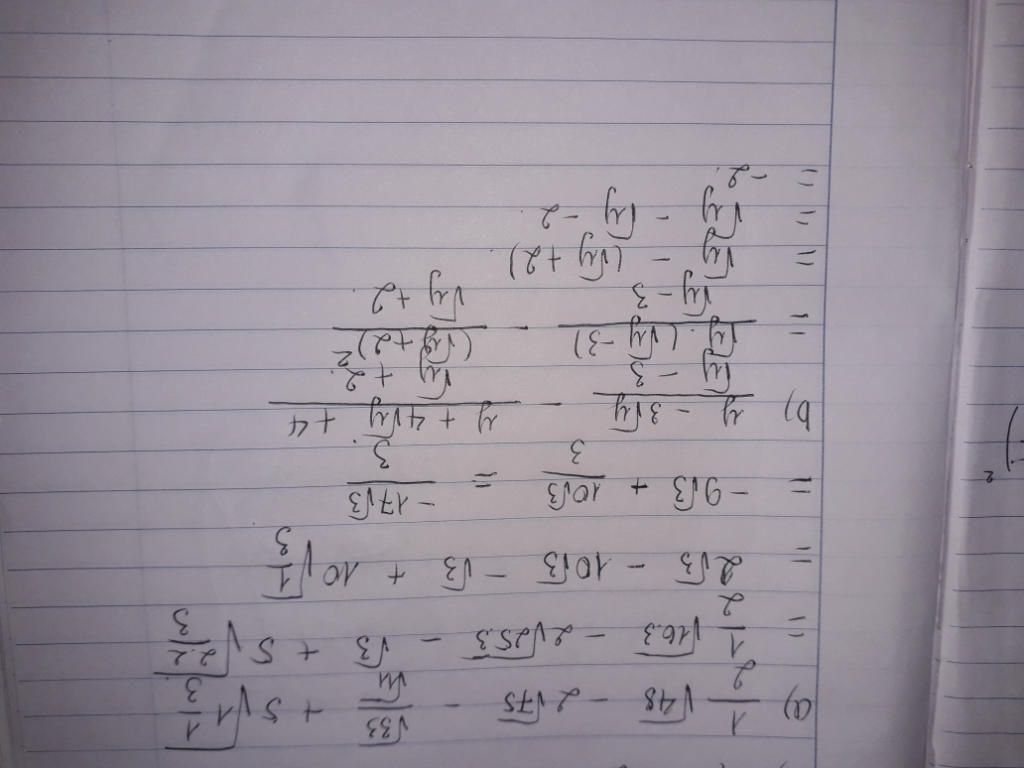 a) 1/2 √48 - 2√75 - √33/√11 + 5√(1 1/3)
= 1/2 √16.3 - 2√25.3 - √3 + 5√(2.2/3)
= 2√3 - 10√3 - √3 + 10√(1/3)
= -9√3 + 10√3/3 = -17√3/3
b) (y - 3√y)/(√y - 3) - (y + 4√y + 4)/(√y + 2)
= (√y . (√y - 3))/(√y - 3) - (√y + 2)²/(√y + 2)
= √y - (√y + 2)
= √y - √y - 2
= -2.